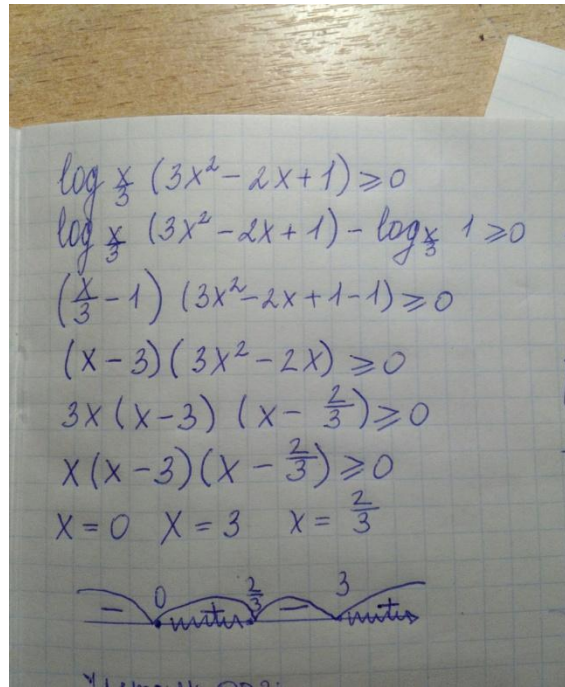 log x/3 (3x² - 2x + 1) ⩾ 0
log x/3 (3x² - 2x + 1) - log x/3 1 ⩾ 0
(x/3 - 1) (3x² - 2x + 1 - 1) ⩾ 0
(x - 3)(3x² - 2x) ⩾ 0
3x(x - 3) (x - 2/3) ⩾ 0
x(x - 3)(x - 2/3) ⩾ 0
x = 0 x = 3 x = 2/3
0 2/3 3
- + - +